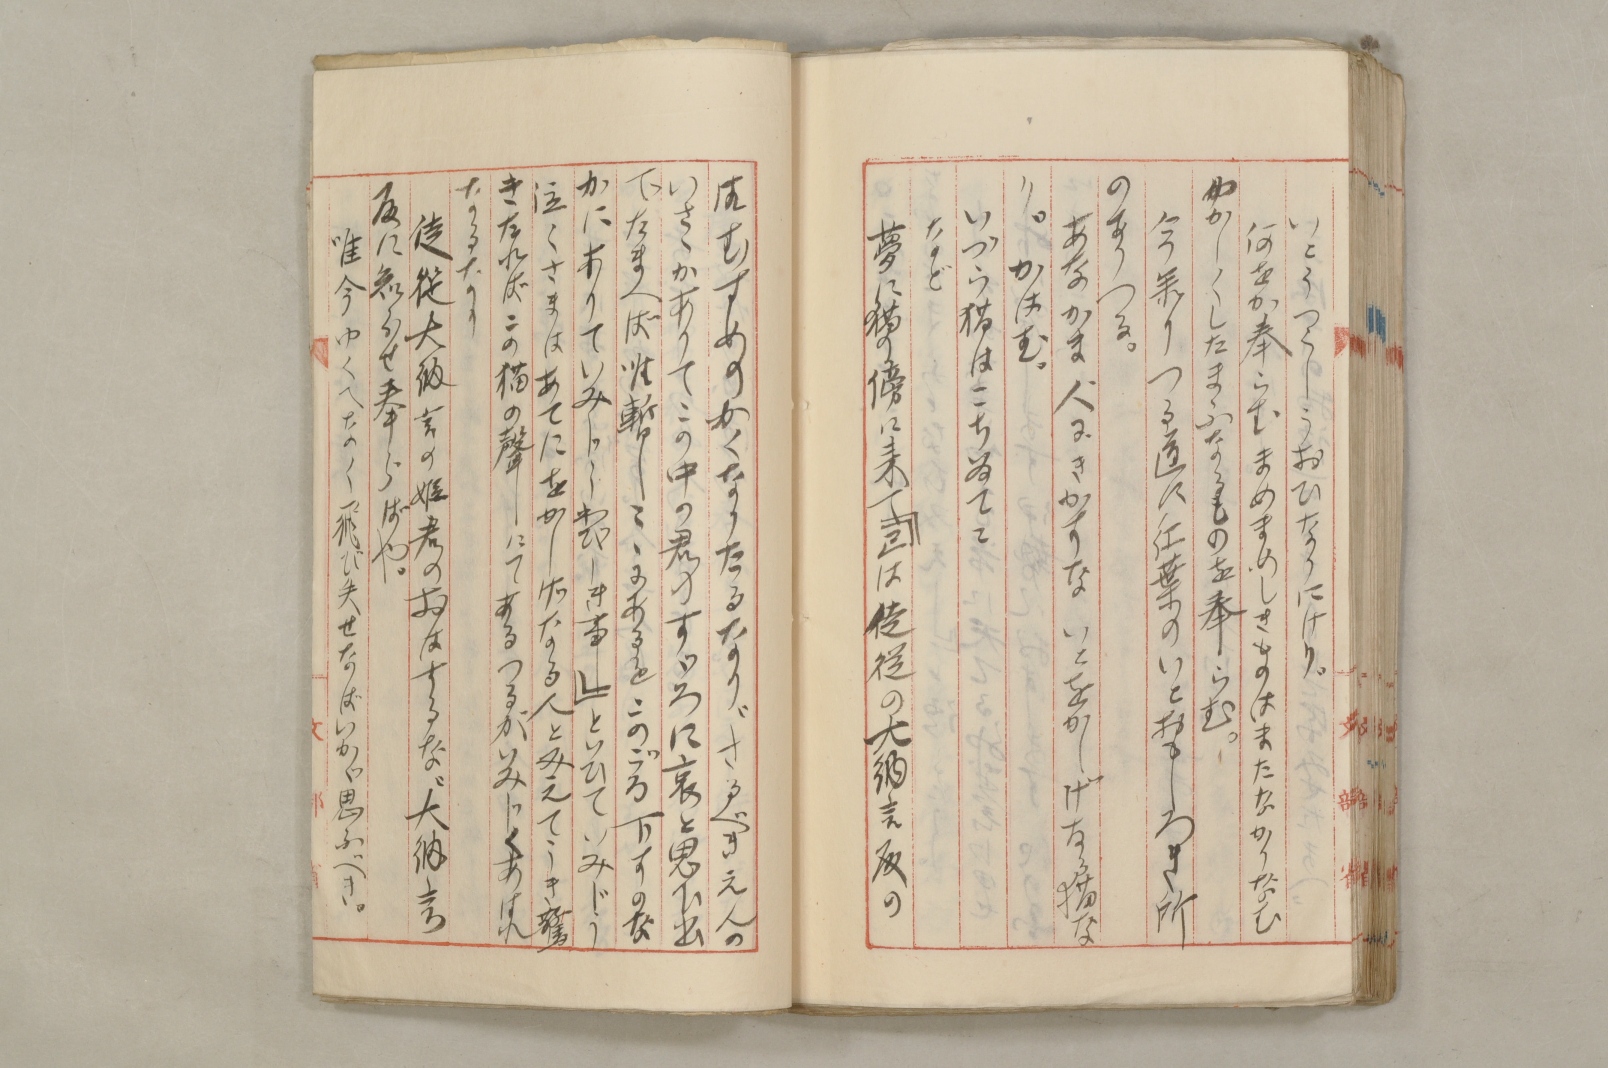 いとうつくしうおひなりにけり。
何をか奉らむまめまめしきものはまさなかりなむ
ゆかしくしたまふなるものを奉らむ。
今參りつる道に紅葉のいとおもしろき所
のありつる。
あなかま人にきかすな いとをかしげなる猫な
り。かはむ。
いづら猫はこちゐてこ
など
夢に猫の傍に來て「己は侍從の大納言殿の
御むすめのかくなりたるなり、さるべきえんの
いさゝかありてこの中の君のすゞろに哀と思ひ出
でたまへば唯暫しこゝにあるをこのごろ下すのな
かにありていみじう わびしき事」といひていみじう
泣くさまはあてにをかしげなる人とみえてうち驚
きたればこの猫の聲にてありつるがいみじくあはれ
なるなり
侍從大納言の姫君のおはするな、大納言
殿に知らせ奉らばや。
唯今ゆくへなく飛び失せなばいかゞ思ふべき。
文部省